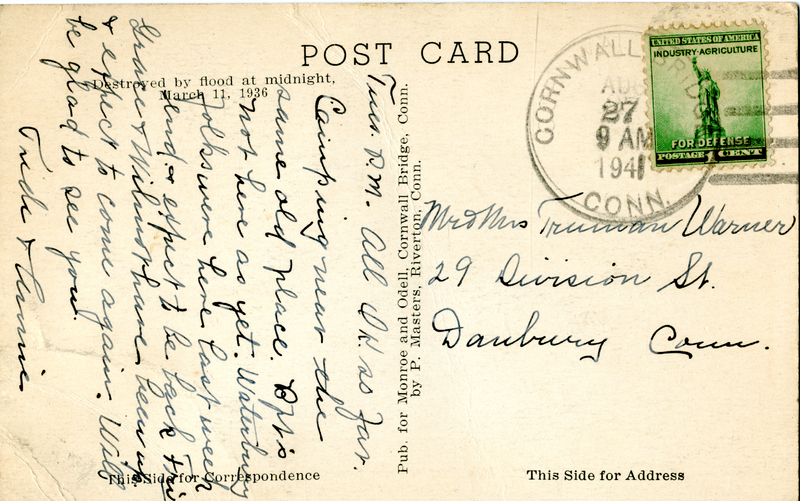 POST CARD
Destroyed by flood at midnight,
March 11, 1936
Tues. P.M. All OK so far.
Camping near the
same old place. B is
not here as yet. Waterbury
folks were here last week
end & expect to be back Fri
Grace & Wilmot have been up
& expect to come again. Will
be glad to see you.
Fride & Annie
This Side for Correspondence
Pub. for Monroe and Odell, Cornwall Bridge, Conn.
by P. Masters, Riverton, Conn.
CORNWALL BRIDGE
AUG
27
9 AM
1941
CONN.
UNITED STATES OF AMERICA
INDUSTRY·AGRICULTURE
FOR DEFENSE
POSTAGE 1 CENT
Mr & Mrs Truman Warner
29 Division St.
Danbury Conn.
This Side for Address